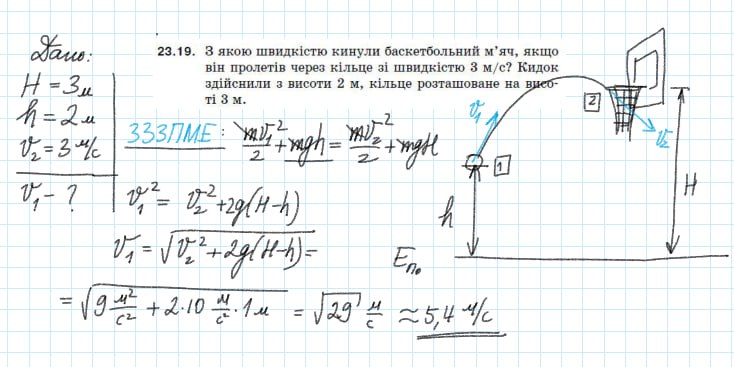 Дано:
H = 3м
h = 2м
v₂ = 3 м/с
v₁ - ?
23.19. З якою швидкістю кинули баскетбольний м'яч, якщо
він пролетів через кільце зі швидкістю 3 м/с? Кидок
здійснили з висоти 2 м, кільце розташоване на висо-
ті 3 м.
ЗЗЗПМЕ: mv₁²/2 + mgh = mv₂²/2 + mgH
v₁² = v₂² + 2g(H-h)
v₁ = √(v₂² + 2g(H-h)) =
= √(9 м²/с² + 2·10 м/с² · 1м) = √29 м/с ≈ 5,4 м/с
v₁
2
v₂
1
h
H
Eп₀